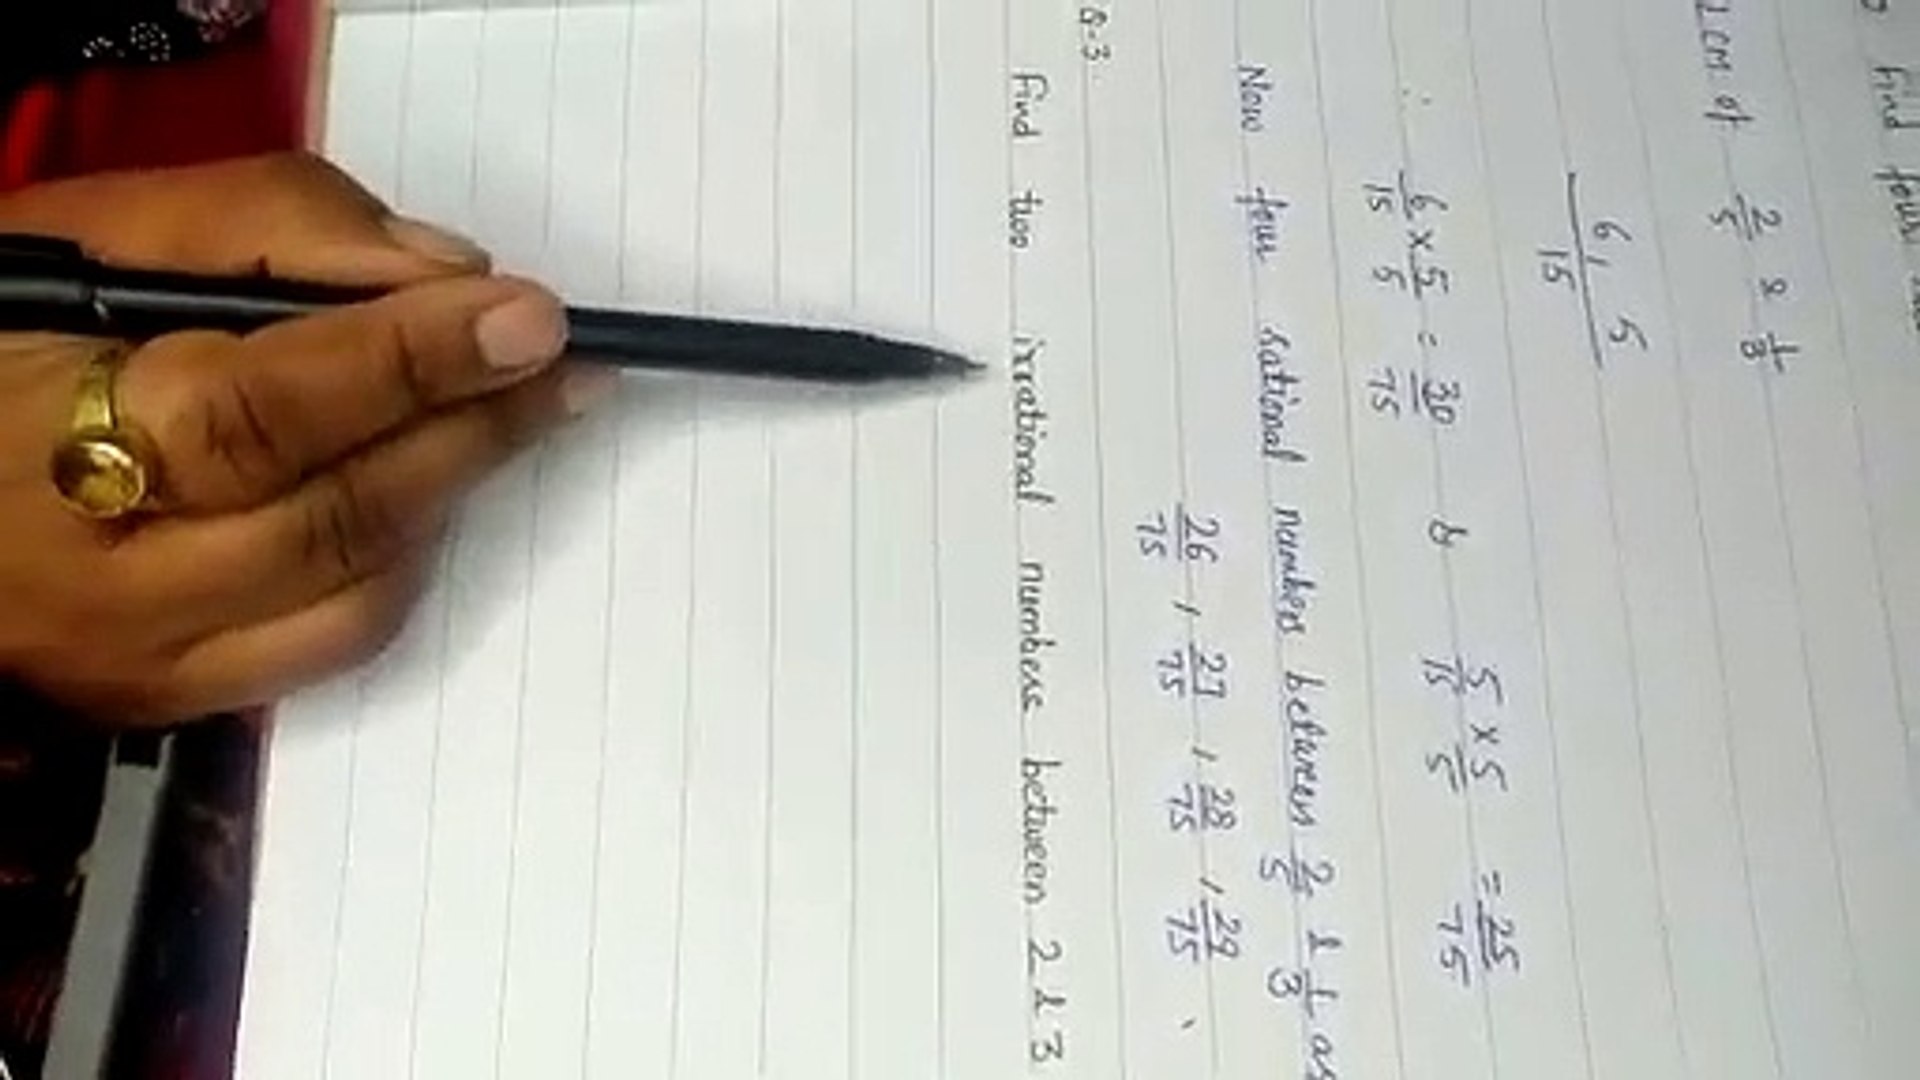 find four
LCM of 2/5 & 1/3
6, 5
15
∴ 6/15 × 5/5 = 30/75 & 5/15 × 5/5 = 25/75
Now four rational numbers between 2/5 & 1/3 as
26/75 , 27/75 , 28/75 , 29/75
Q.3
find two irrational numbers between 2 & 3